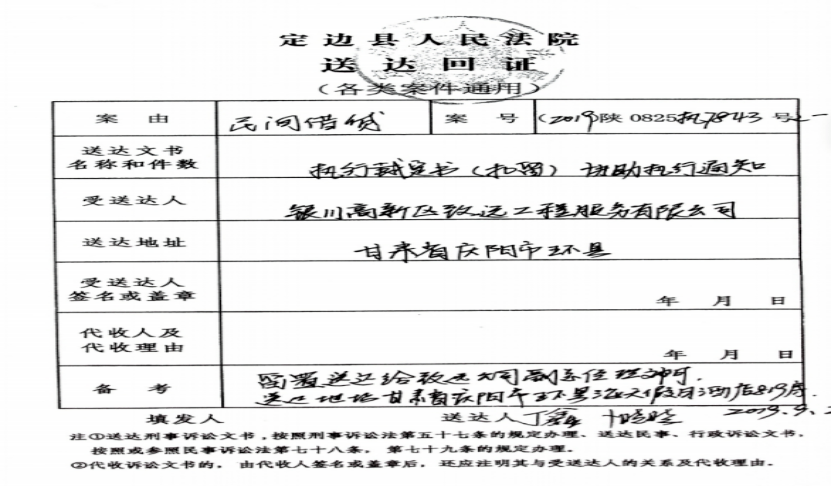 定边县人民法院
送达回证
(各类案件通用)
案由 民间借贷 案号 (2019)陕0825执7843号之一
送达文书
名称和件数 执行裁定书(扣留) 协助执行通知
受送达人 银川高新区致远工程服务有限公司
送达地址 甘肃省庆阳市环县
受送达人
签名或盖章 年 月 日
代收人及
代收理由 年 月 日
备考 留置送达给致远公司副总经理
送达地址甘肃省庆阳市环县 酒店819房.
填发人 送达人 丁鑫 2019.9.
注①送达刑事诉讼文书,按照刑事诉讼法第五十七条的规定办理、送达民事、行政诉讼文书,
按照或参照民事诉讼法第七十八条,第七十九条的规定办理。
②代收诉讼文书的,由代收人签名或盖章后,还应注明其与受送达人的关系及代收理由。